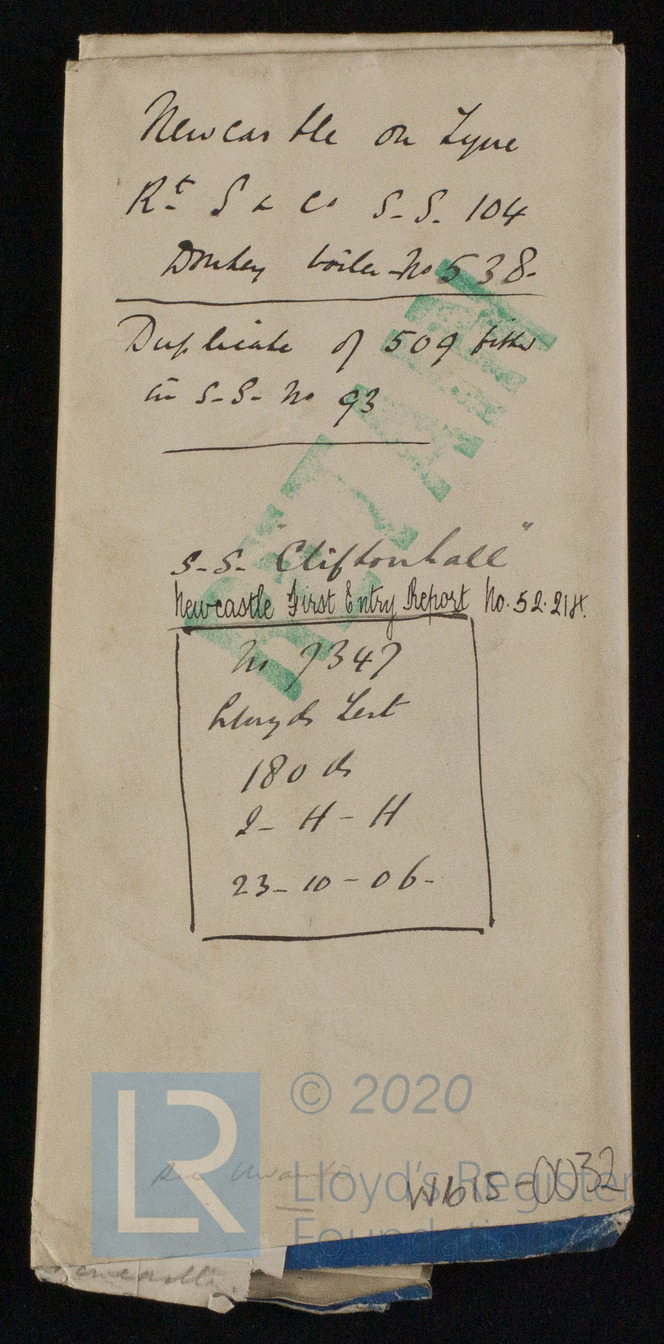 Newcastle on Tyne
Rt S & Co S.S. 104
Donkey boiler No 538.
Duplicate of 509 fitted
in S.S. No 93
RETAIN
S.S. "Cliftonhall"
Newcastle First Entry Report No. 52.218.
No 7347
Lloyds Test
180 lbs
J-H-H
23-10-06-
LR
© 2020
Lloyd's Register
Foundation
W615-0032
Newcastle